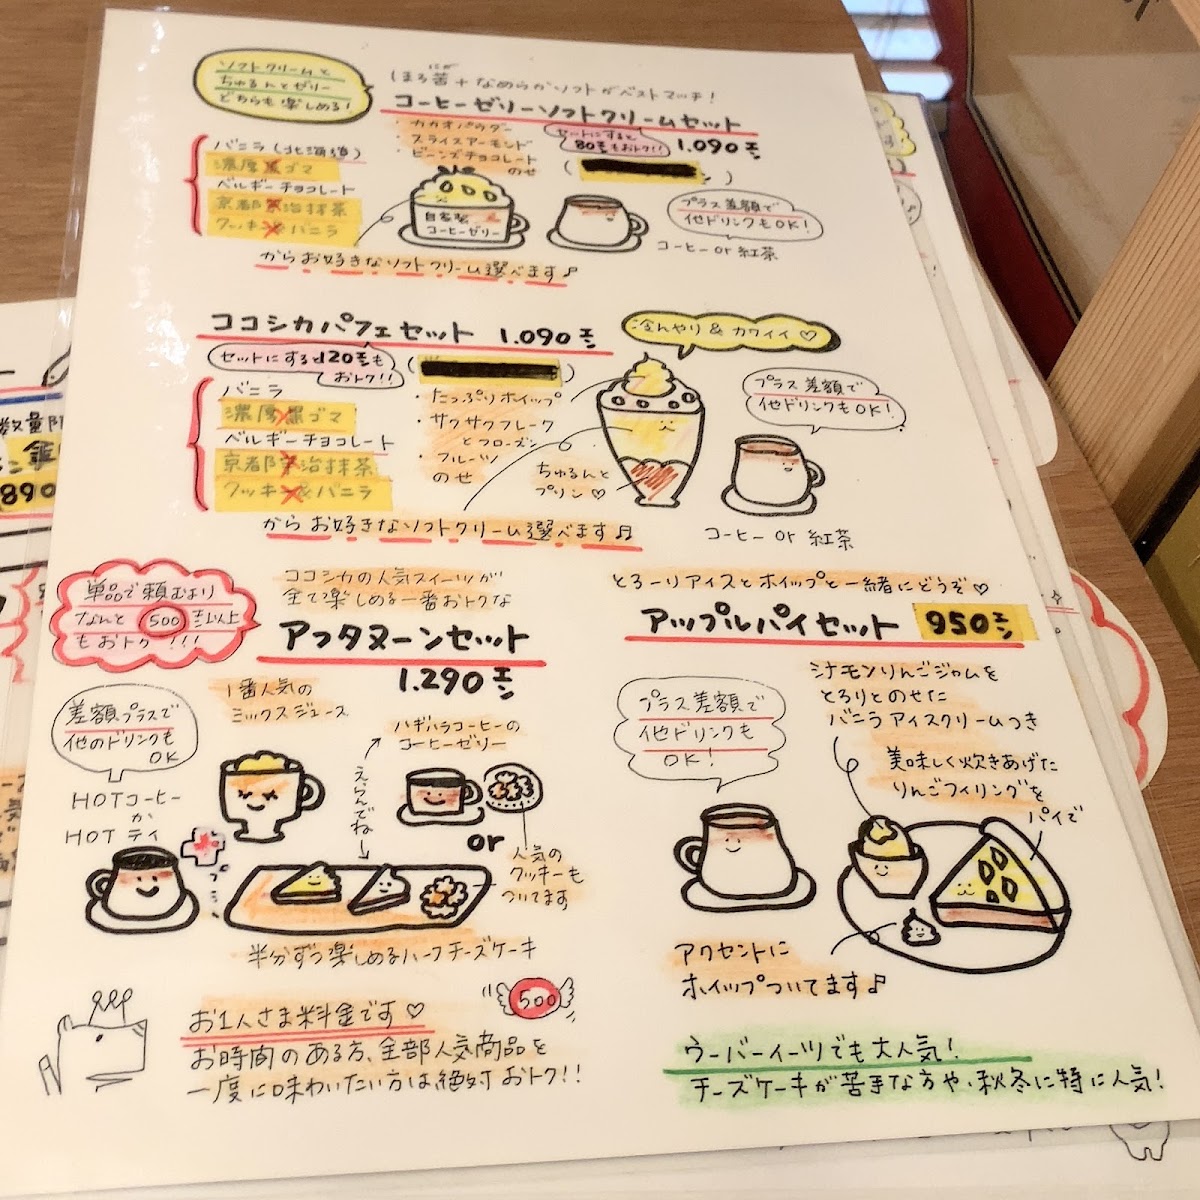 ソフトクリームと
ちゅるんとゼリー
どちらも楽しめる!
ほろ苦+なめらかソフトがベストマッチ!
コーヒーゼリーソフトクリームセット
・カカオパウダー
・スライスアーモンド
・ビーンズチョコレート
のせ
セットにすると
80円もおトク!!
1.090円
バニラ(北海道)
濃厚黒ゴマ
ベルギーチョコレート
京都宇治抹茶
クッキー&バニラ
自家製
コーヒーゼリー
プラス差額で
他ドリンクもOK!
コーヒー or 紅茶
からお好きなソフトクリーム選べます♪
ココシカパフェセット 1.090円
セットにすると120円も
おトク!!
冷んやり & カワイイ♡
バニラ
濃厚黒ゴマ
ベルギーチョコレート
京都宇治抹茶
クッキー&バニラ
・たっぷりホイップ
・サクサクフレーク
とフローズン
・フルーツ
のせ
ちゅるんと
プリン♡
プラス差額で
他ドリンクもOK!
コーヒー or 紅茶
からお好きなソフトクリーム選べます♫
単品で頼むより
なんと500円以上
もおトク!!!
ココシカの人気スイーツが
全て楽しめる一番おトクな
アフタヌーンセット
1.290円
差額プラスで
他のドリンクも
OK
HOTコーヒー
か
HOTティ
1番人気の
ミックスジュース
ハギハラコーヒーの
コーヒーゼリー
えらんでね
or
人気の
クッキーも
ついてます
半分ずつ楽しめるハーフチーズケーキ
お1人さま料金です♡
500
お時間のある方、全部人気商品を
一度に味わいたい方は絶対おトク!!
とろーりアイスとホイップと一緒にどうぞ♡
アップルパイセット 950円
プラス差額で
他ドリンクも
OK!
シナモンりんごジャムを
とろりとのせた
バニラアイスクリームつき
美味しく炊きあげた
りんごフィリングを
パイで
アクセントに
ホイップついてます♪
ウーバーイーツでも大人気!
チーズケーキが苦手な方や、秋冬に特に人気!
数量限
890